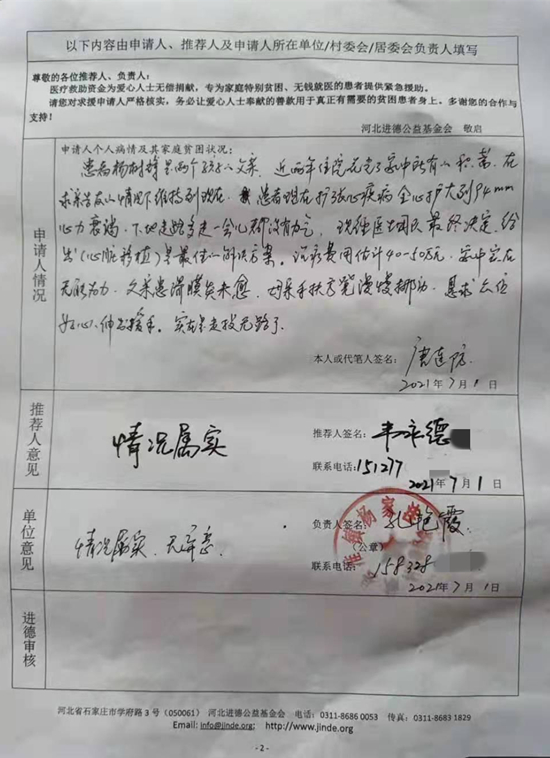 以下内容由申请人、推荐人及申请人所在单位/村委会/居委会负责人填写
尊敬的各位推荐人、负责人：
医疗救助资金为爱心人士无偿捐献，专为家庭特别贫困、无钱就医的患者提供紧急援助。
请您对求援申请人严格核实，务必让爱心人士奉献的善款用于真正有需要的贫困患者身上。多谢您的合作与
支持！
河北进德公益基金会 敬启
申请人情况
申请人个人病情及其家庭贫困状况：
患者杨树锋是两个孩子父亲 近两年住院花光了家中所有的积蓄，在
求亲告友的情况下维持到现在，患者现在扩张心疾病全心扩大到94mm
心力衰竭，下地走路多走一会儿都没有力气，现经医生团队最终决定，给
出（心脏移植）是最佳的解决方案。治疗费用估计40-50万元，家中实在
无能为力，父亲患滑膜炎未愈，母亲手扶方凳慢慢挪动，恳求各位
好心人伸出援手。实在是走投无路了
本人或代笔人签名：
2021年7月1日
推荐人意见
情况属实
推荐人签名：
联系电话：151277
2021年7月1
单位意见
情况属实 无异意
负责人签名：
（公章）
联系电话：158328
2021年7月1日
进德审核
河北省石家庄市学府路 3 号（050061） 河北进德公益基金会 电话：0311-8686 0053 传真：0311-8683 1829
Email: info@jinde.org; http://www.jinde.org
- 2 -